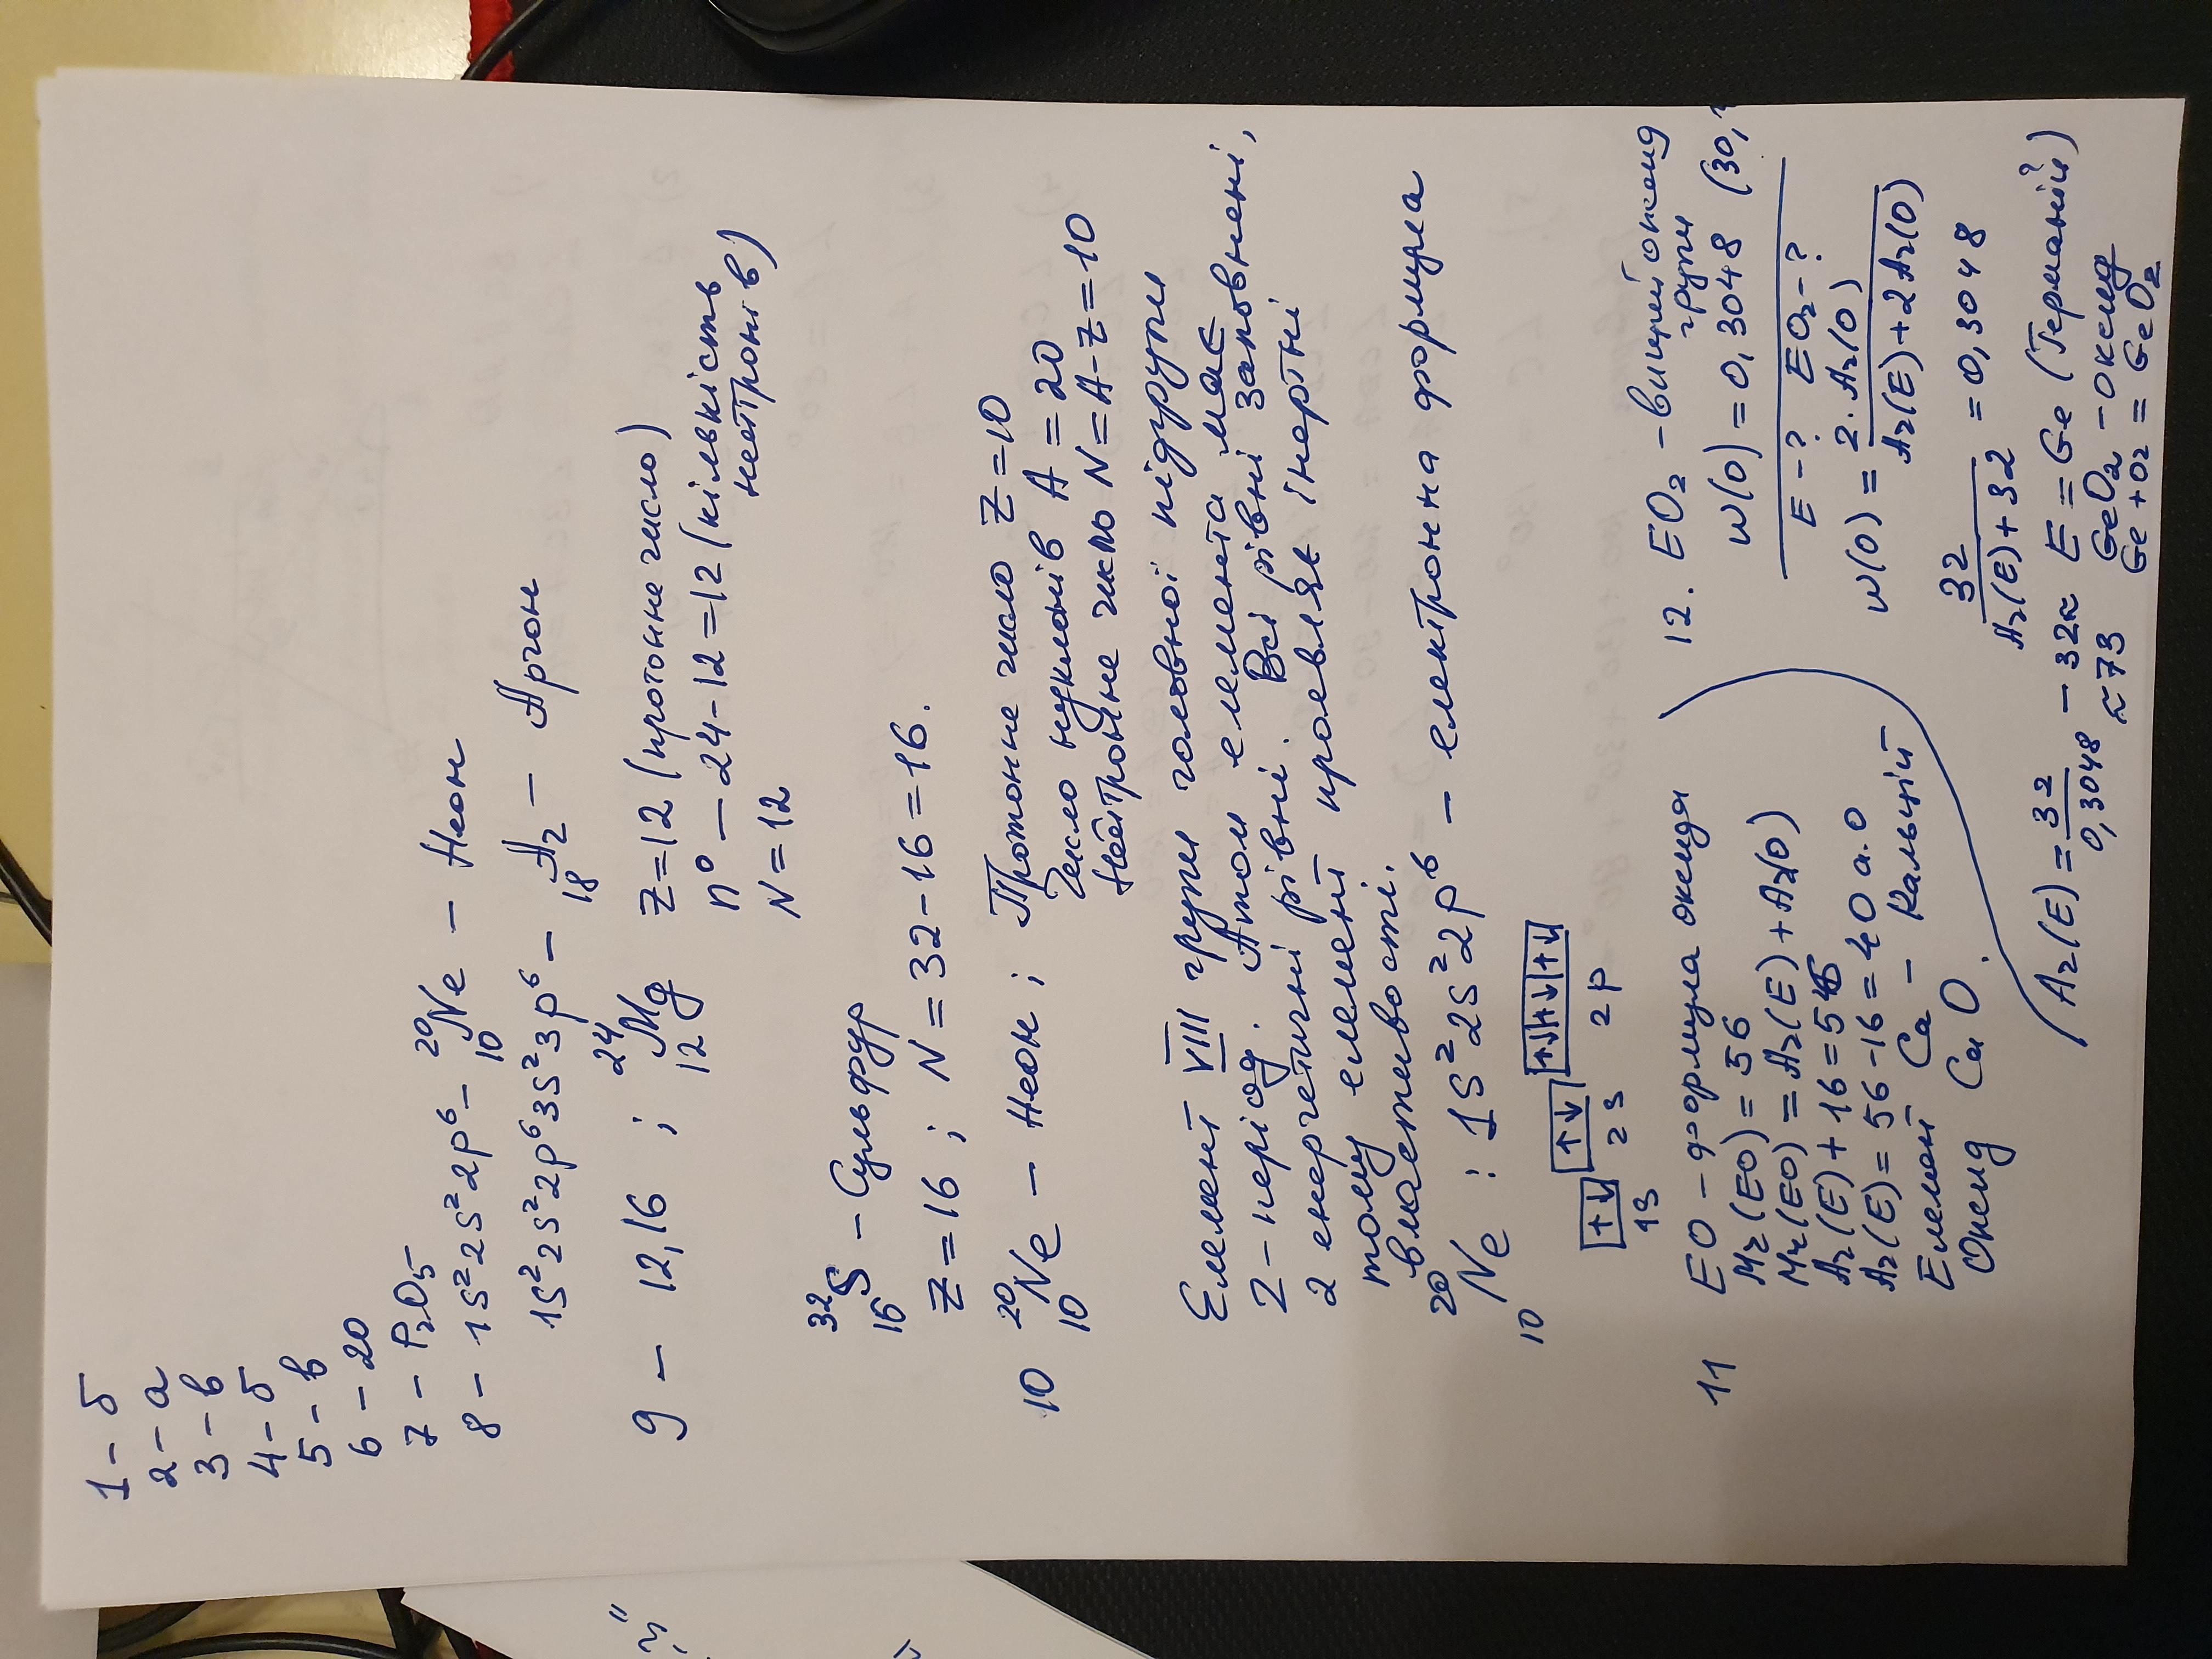 1 - б
2 - а
3 - в
4 - б
5 - в
6 - 20
7 - P₂O₅
8 - 1s² 2s² 2p⁶ - ²⁰₁₀Ne - Неон
1s² 2s² 2p⁶ 3s² 3p⁶ - ₁₈Ar - Аргон
9 - 12, 16 ; ²⁴₁₂Mg Z = 12 (протонне число)
n⁰ - 24 - 12 = 12 (кількість нейтронів)
N = 12
³²₁₆S - Сульфур
Z = 16 ; N = 32 - 16 = 16.
10 ²⁰₁₀Ne - Неон ; Протонне число Z = 10
Число нуклонів A = 20
Нейтронне число N = A - Z = 10
Елемент VIII групи головної підгрупи
2 - період. Атом елемента має
2 енергетичні рівні. Всі рівні заповнені,
тому елемент проявляє інертні
властивості.
²⁰₁₀Ne : 1s² 2s² 2p⁶ - електронна формула
↑↓ ↑↓ ↑↓ ↑↓ ↑↓
1s 2s 2p
11 EO - формула оксидя
Mr (EO) = 56
Mr (EO) = Ar (E) + Ar(O)
Ar (E) + 16 = 56
Ar (E) = 56 - 16 = 40 а.о
Елемент Ca - Кальцій
Оксид CaO.
12. EO₂ - вищий оксид
групи
w(O) = 0,3048 (30,
E - ? EO₂ - ?
w(O) = 2 · Ar(O) / Ar(E) + 2Ar(O)
32 / Ar(E) + 32 = 0,3048
Ar(E) = 32 / 0,3048 - 32 ≈
≈ 73
E = Ge (Германій)
GeO₂ - оксид
Ge + O₂ = GeO₂